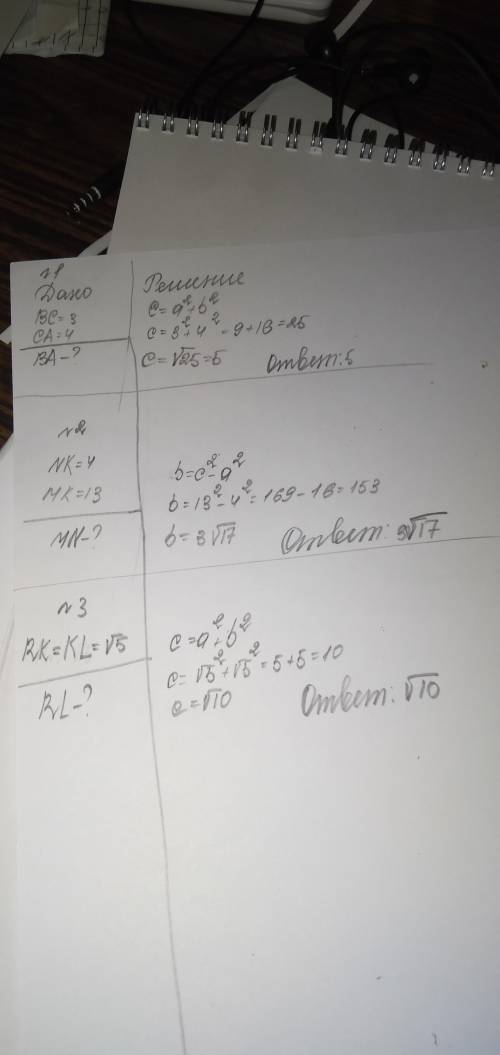 №1
Дано
BC=3
CA=4
BA-?
Решение
c=a²+b²
c=3²+4²=9+16=25
c=√25=5 Ответ:5
№2
NK=4
MK=13
MN-?
b=c²-a²
b=13²-4²=169-16=153
b=3√17 Ответ: 3√17
№3
RK=KL=√5
RL-?
c=a²+b²
c=√5²+√5²=5+5=10
c=√10 Ответ: √10